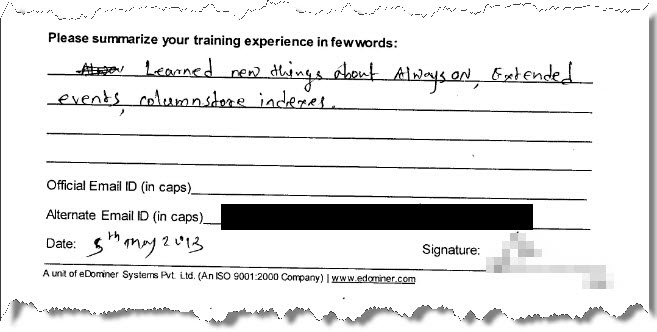 Please summarize your training experience in few words:
Learned new things about Always on, Extended
events, columnstore indexes.
Official Email ID (in caps)
Alternate Email ID (in caps)
Date: 5th may 2013
Signature:
A unit of eDominer Systems Pvt. Ltd. (An ISO 9001:2000 Company) | www.edominer.com